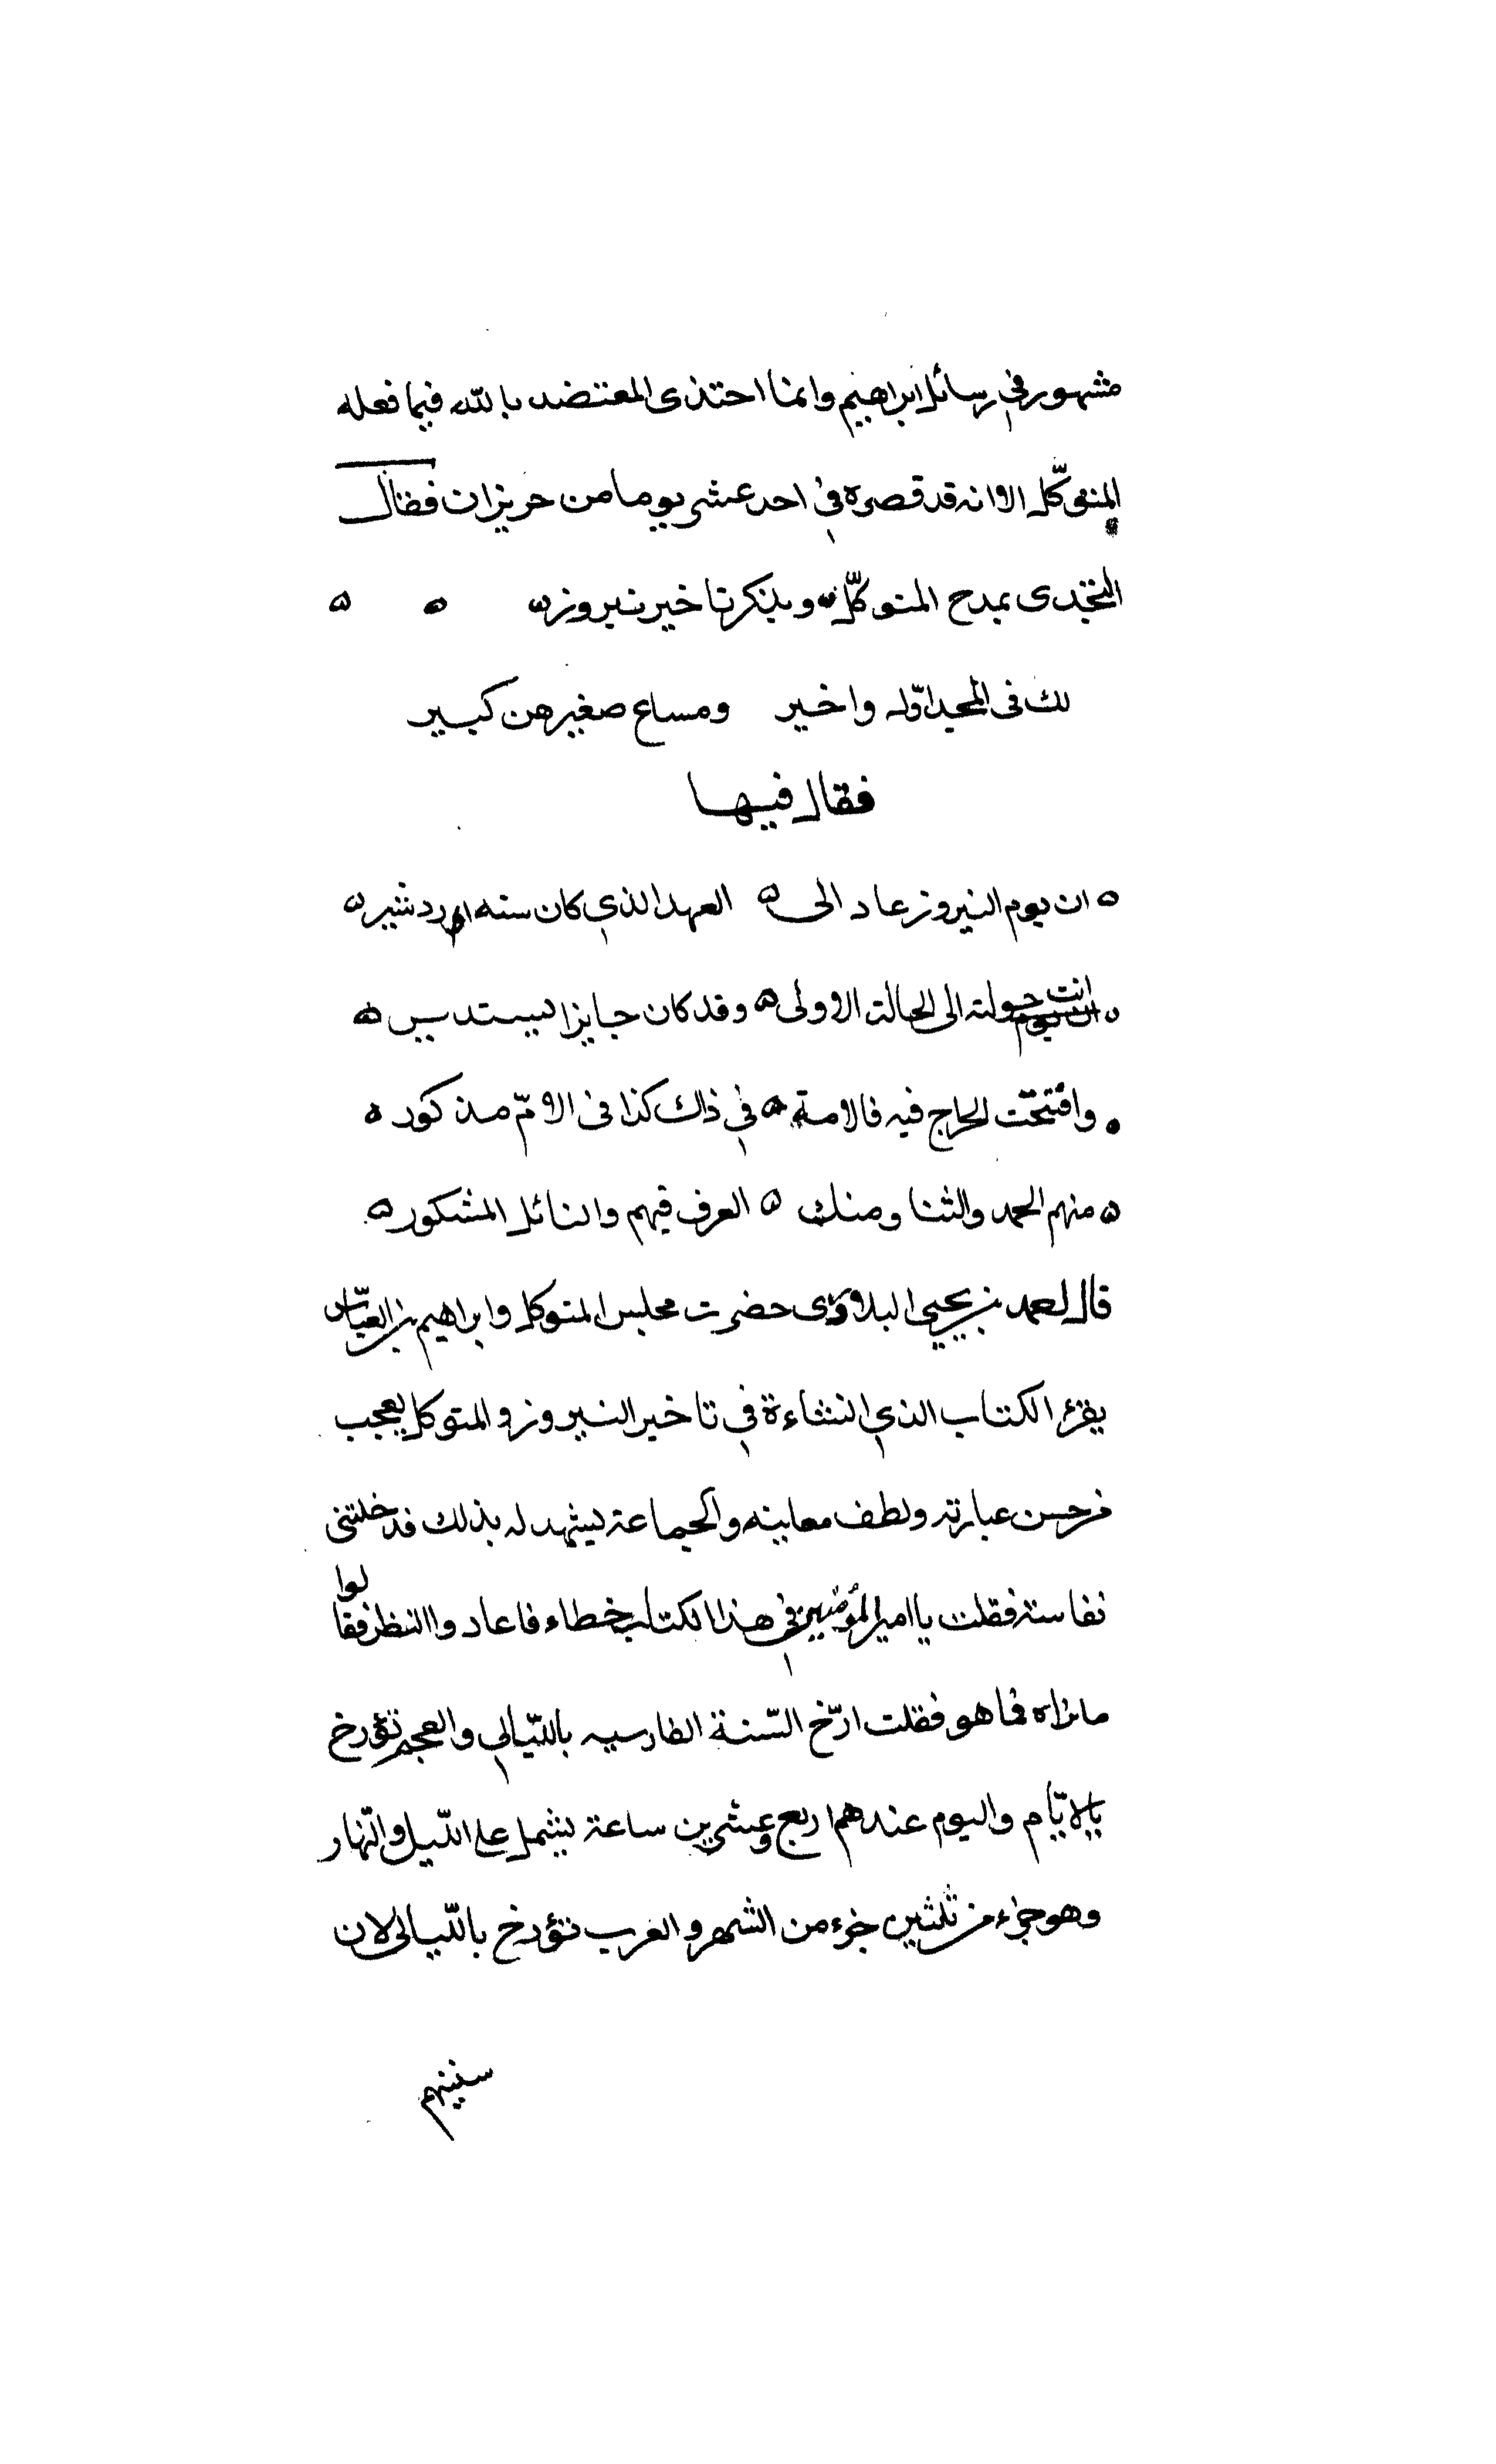 مشهور في رسائل ابراهيم وانما احتذى المعتضد بالله فيما فعله
المتوكّل الا انه قد قصره في احد عشر يوما من حزيران فقال
البختدى بمدح المتوكّل ويذكر تاخير نيروزه
لك فى المجد اوّله واخير ومساع صغيرهن كبير
فقال فيها
ان يوم النيروز عاد الى العهد الذي كان سنه اردشير
انت حولته الى الحالة الاولى وقد كان حايرا يستدير
وافتتحت الحراج فيه فالامة في ذاك كذا فى الامّ مذكور
منهم الحمد والثنا ومنك العرف فيهم والنائل المشكور
قال احمد بن يحيى البلاذرى حضرت مجلس المتوكل وابراهيم بن العبّاس
يقرء الكتاب الذي انشاءة في تاخير النيروز والمتوكل يعجب
من حسن عبارته ولطف معانيه والجماعة يشهد له بذلك فدخلتنى
نفاسته فقلت يا امير المؤمنين في هذا الكتاب خطاء فاعادوا النظر فقالوا
مانراه فما هو فقلت ارّخ السّنة الفارسيه باللّيالي والعجم تؤرخ
بالايّام واليوم عندهم اربع وعشرين ساعة يشمل على اللّيل والنّهار
وهو جزء من ثلثين جزء من الشهر والعرب تؤرخ باللّيالى لان
سنينهم